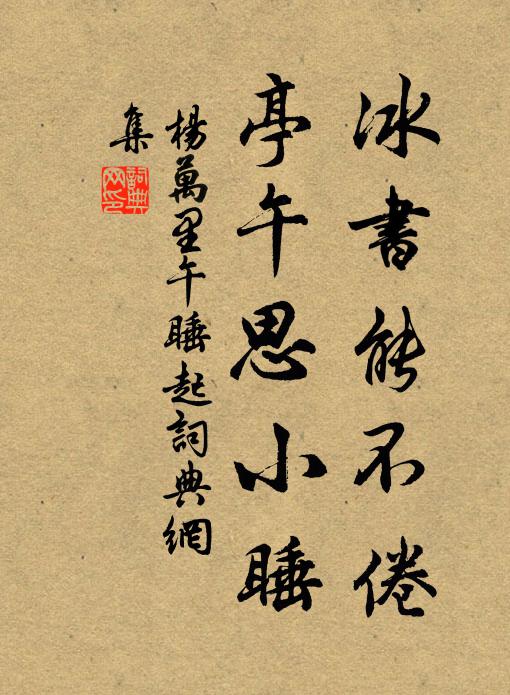 冰書能不倦
亭午思小睡
楊萬里午睡起詞典網
集
詞典網印